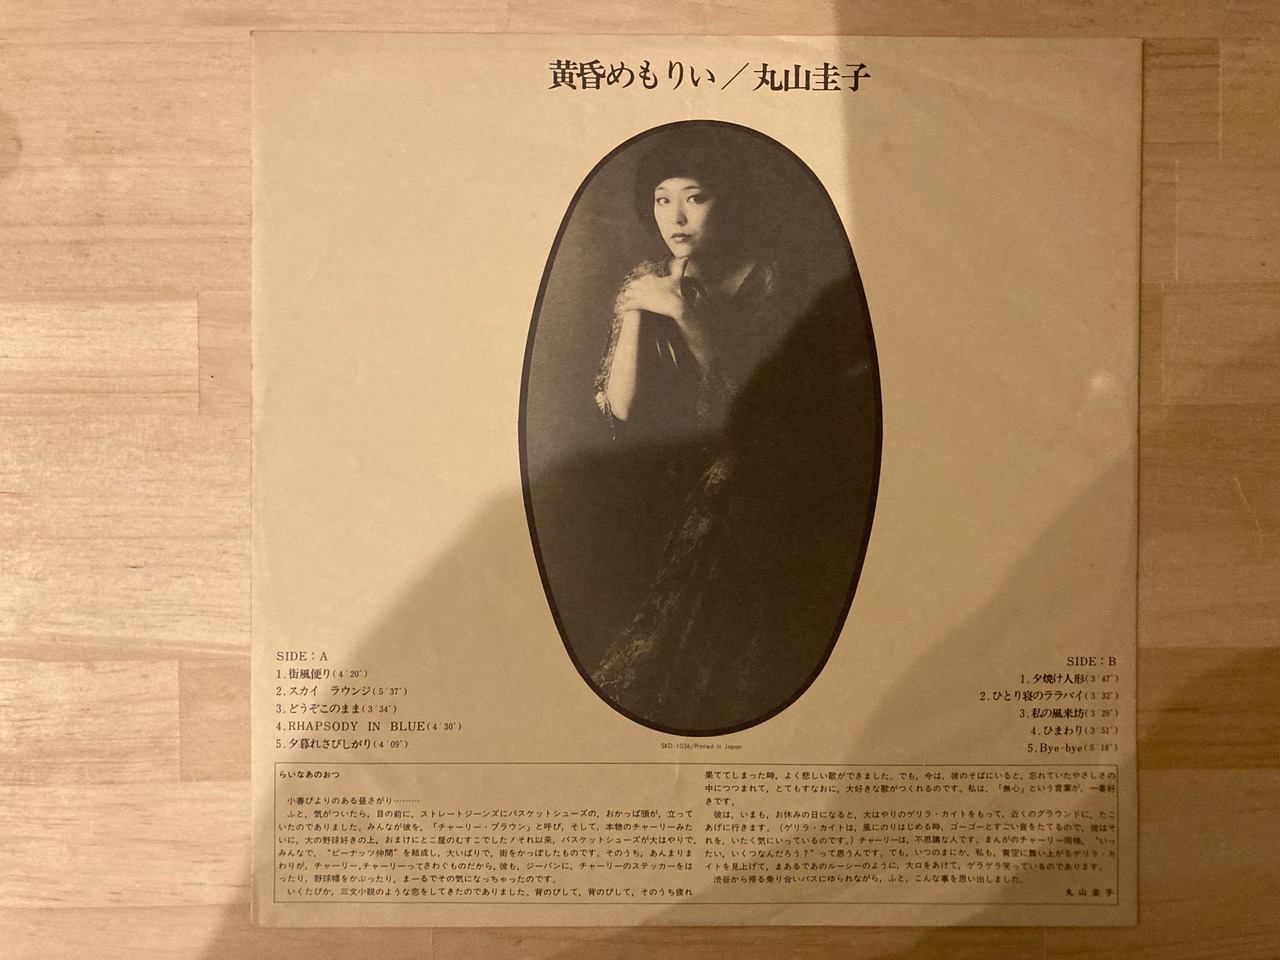 黄昏めもりい／丸山圭子
SIDE：A
1.街風便り(4′20″)
2.スカイ　ラウンジ(5′37″)
3.どうぞこのまま(3′34″)
4.RHAPSODY IN BLUE(4′30″)
5.夕暮れさびしがり(4′09″)
SIDE：B
1.夕焼け人形(3′47″)
2.ひとり寝のララバイ(3′32″)
3.私の風来坊(3′29″)
4.ひまわり(3′51″)
5.Bye-bye(5′18″)
SKD-1036/Printed in Japan
らいなあのおつ
小春びよりのある昼さがり………
ふと、気がついたら、目の前に、ストレートジーンズにバスケットシューズの、おかっぱ頭が、立って
いたのでありました。みんなが彼を、「チャーリー・ブラウン」と呼び、そして、本物のチャーリーみた
いに、大の野球好きの上、おまけにとこ屋のむすこでした！それ以来、バスケットシューズが大はやりで、
みんなで、“ピーナッツ仲間”を結成し、大いばりで、街をかっぽしたものです。そのうち、あんまりま
わりが、チャーリー,チャーリーってさわぐものだから、彼も、ジーパンに、チャーリーのステッカーをは
ったり、野球帽をかぶったり、まーるでその気になっちゃったのです。
いくたびか、三文小説のような恋をしてきたのでありました。背のびして、背のびして、そのうち疲れ
果ててしまった時、よく悲しい歌ができました。でも、今は、彼のそばにいると、忘れていたやさしさの
中につつまれて、とてもすなおに、大好きな歌がつくれるのです。私は、「無心」という言葉が、一番好
きです。
彼は、いまも、お休みの日になると、大はやりのゲリラ・カイトをもって、近くのグラウンドに、たこ
あげに行きます。（ゲリラ・カイトは、風にのりはじめる時、ゴーゴーとすごい音をたてるので、彼はそ
れを、いたく気にいっているのです。）チャーリーは、不思議な人です。まんがのチャーリー同様、“いっ
たい、いくつなんだろう？”って思うんです。でも、いつのまにか、私も、青空に舞い上がるゲリラ・カ
イトを見上げて、まあるであのルーシーのように、大口をあけて、ゲラゲラ笑っているのであります。
渋谷から帰る乗り合いバスにゆられながら、ふと、こんな事を思い出しました。
丸山圭子